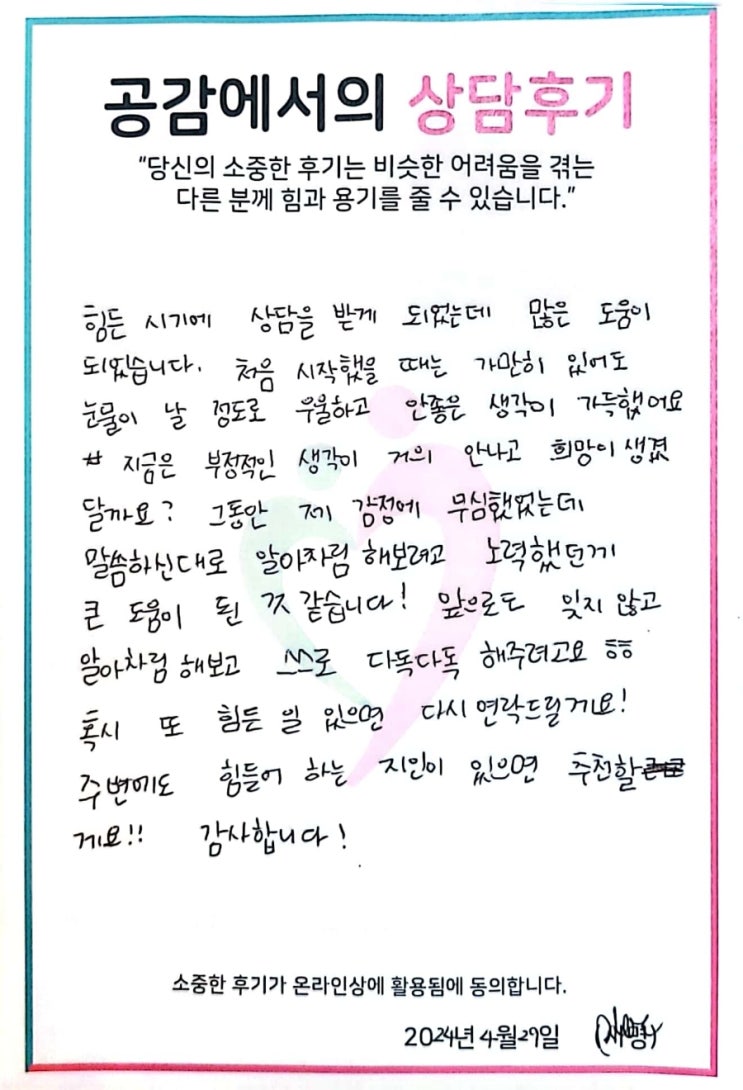 공감에서의 상담후기
"당신의 소중한 후기는 비슷한 어려움을 겪는
다른 분께 힘과 용기를 줄 수 있습니다."
힘든 시기에 상담을 받게 되었는데 많은 도움이
되었습니다. 처음 시작했을 때는 가만히 있어도
눈물이 날 정도로 우울하고 안좋은 생각이 가득했어요
지금은 부정적인 생각이 거의 안나고 희망이 생겼
달까요? 그동안 제 감정에 무심했었는데
말씀하신대로 알아차림 해보려고 노력했던게
큰 도움이 된 것 같습니다! 앞으로도 잊지 않고
알아차림 해보고 스스로 다독다독 해주려고요 ㅎㅎ
혹시 또 힘든 일 있으면 다시 연락드릴게요!
주변에도 힘들어 하는 지인이 있으면 추천할
게요!! 감사합니다!
소중한 후기가 온라인상에 활용됨에 동의합니다.
2024년 4월29일